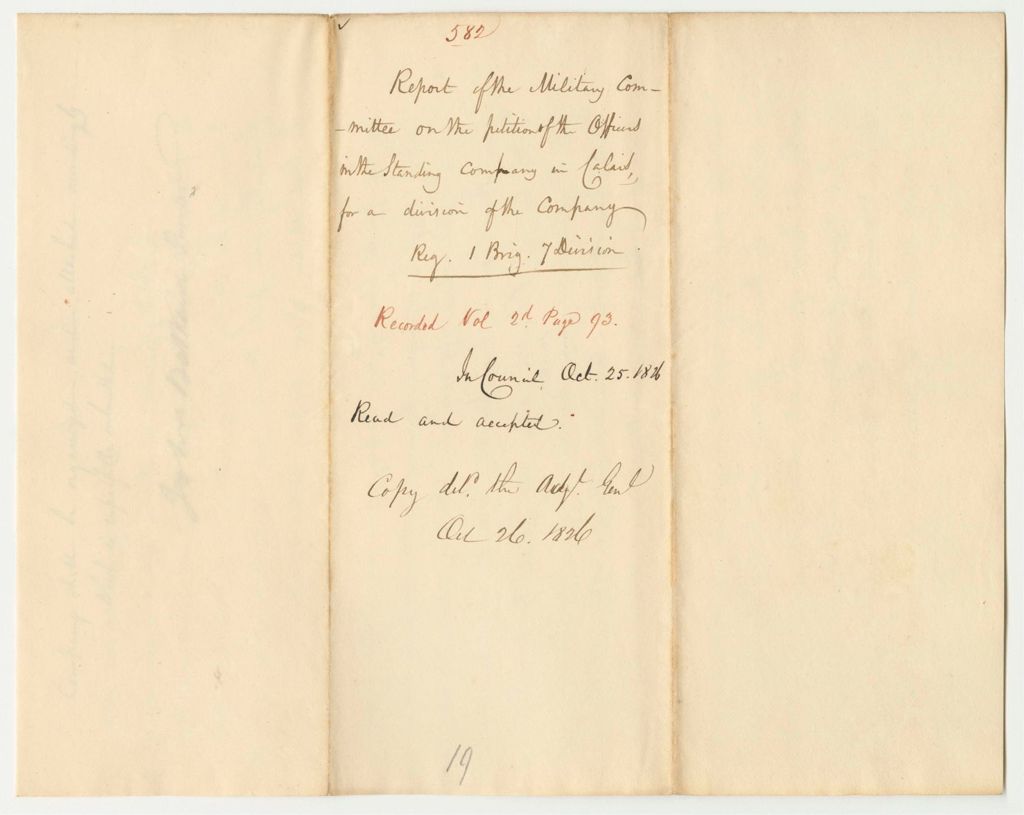 582
Report of the Military Com-
-mittee on the petition of the Officers
in the Standing Company in Calais,
for a division of the Company
Reg. 1 Brig. 7 Division.
Recorded Vol 2d. Page 93.
In Council, Oct. 25. 1826
Read and accepted.
Copy deld. the Adjt. Genl
Oct 26. 1826
19